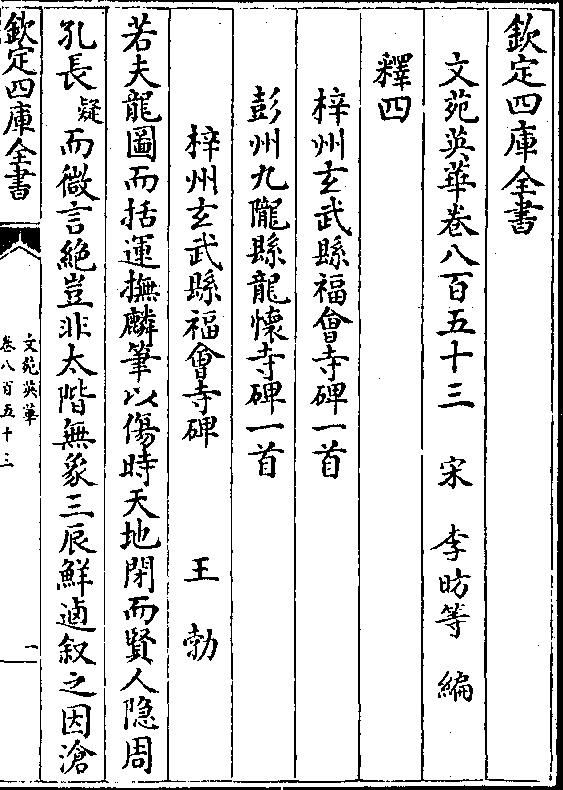 欽定四庫全書
文苑英華卷八百五十三 宋 李昉等 編
釋四
梓州玄武縣福會寺碑一首
彭州九隴縣龍懷寺碑一首
梓州玄武縣福會寺碑 王勃
若夫龍圖而括運撫麟筆以傷時天地閉而賢人隐周
孔長疑而微言絶豈非太階無象三辰鮮逌叙之因滄
欽定四庫全書
文苑英華
卷八百五十三
一